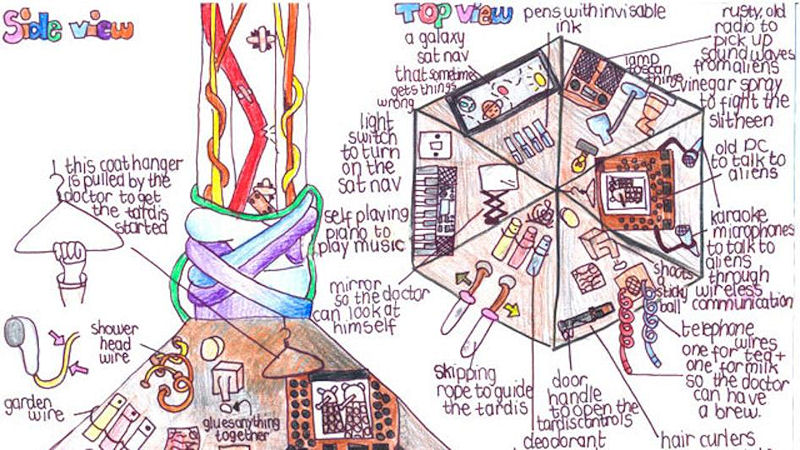 Side view
this coat hanger
is pulled by the
doctor to get
the tardis
started
shower
head
wire
garden
wire
glues anything
together
Top view
a galaxy
sat nav
that sometimes
gets things
wrong
light
switch
to turn
on the
sat nav
self playing
piano to
play music
mirror
so the doctor
can look at
himself
skipping
rope to guide
the tardis
pens with invisable
ink
rusty, old
radio to
pick up
sound waves
from aliens
lamp
to scan
things
vinegar spray
to fight the
slitheen
old PC
to talk to
aliens
karaoke
microphones
to talk to
aliens
through
wireless
communication
shoots
a
sticky
ball
telephone
wires
one for tea +
one for milk
so the doctor
can have
a brew.
door
handle
to open the
tardis controls
deodorant
hair curlers